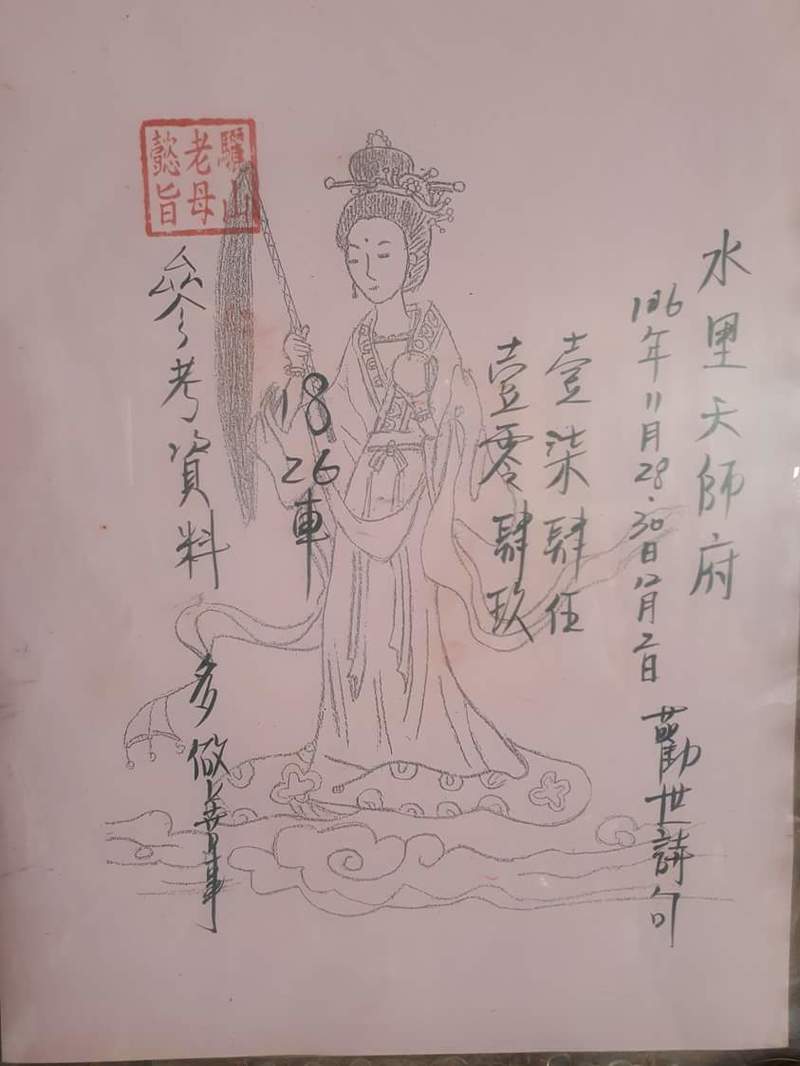 水里天師府
106年11月28.30日12月2日 勸世詩句
壹柒肆伍
壹零肆玖
18
26車
驪山
老母
懿旨
參考資料 多做善事